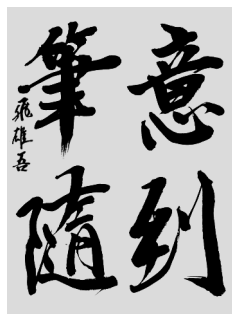 意到
筆隨
飛雄吾